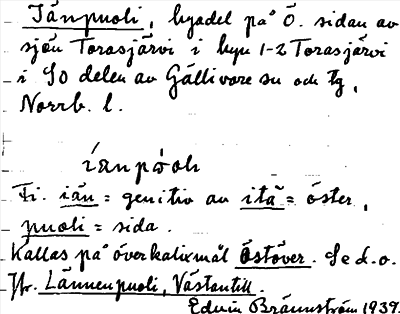 Iänpuoli, byadel på Ö. sidan av
sjön Torasjärvi i byn 1-2 Torasjärvi
i SO delen av Gällivare sn och tg,
Norrb. l.
íænpo̯oli
Fi. iän = genitiv av itä = öster,
puoli = sida.
Kallas på överkalixmål Östöver. Se d.o.
Jfr. Lännenpuoli, Västantill.
Edvin Brännström 1939.